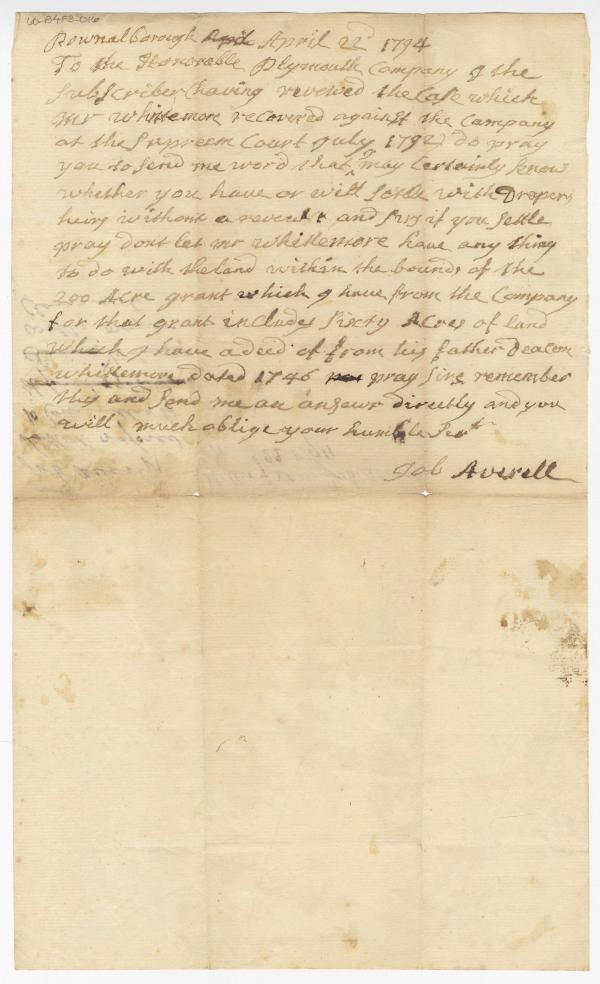 60-B4F3-016
Pownalborough April April 22d 1794
To the Honoreble Plymouth Company I the
Subscriber (having revewed the Case which
Mr Whittemore recovered against the Company
at the Supreem Court July 1792) do pray
you to Send me word that I may Certainly know
whether you have or will Settle with Drapers
heirs without a reveu & and Sirs if you Settle
pray dont let mr whittemore have any thing
to do with the land within the bounds of the
200 Acre grant which I have from the Company
for that grant includes Sixty Acres of land
which I have a deed of from his father Deacon
whittemore dated 1746 pray Sirs remember
this and Send me an answer directly and you
will much oblige your humble Servt
Job Averell